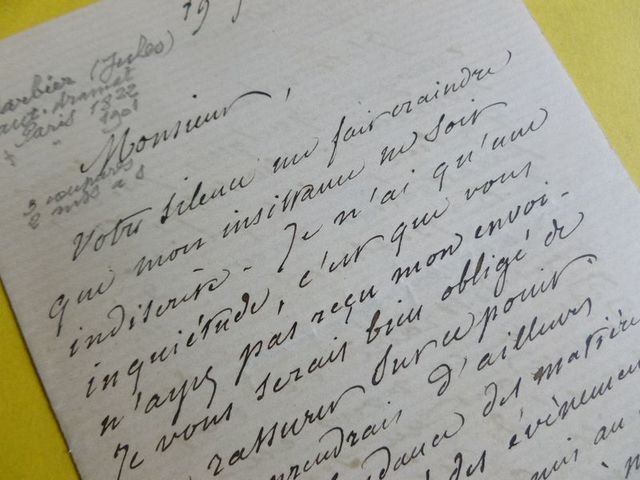 19
arbier (Jules)
aut. dramat
Paris 1822
+ " 1901
Monsieur,
Votre silence me fait craindre
que mon insistance ne soit
indiscrète. Je n'ai qu'une
inquiétude, c'est que vous
n'ayez pas reçu mon envoi.
Je vous serais bien obligé de
rassurer sur ce point.
prendrais d'ailleurs
dance des matière
des évènemen
mis au